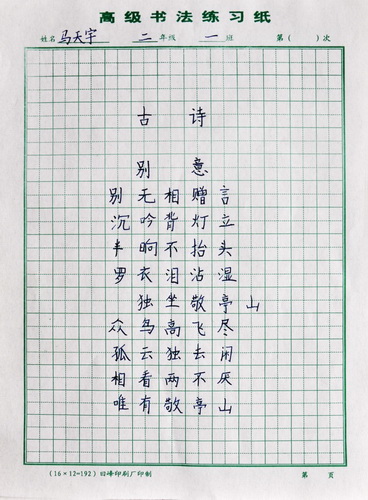 高级书法练习纸
姓名 马天宇 二 年级 一 班 第( )次
古 诗
别 意
别无相赠言
沉吟背灯立
半晌不抬头
罗衣泪沾湿
独坐敬亭山
众鸟高飞尽
孤云独去闲
相看两不厌
唯有敬亭山
(16×12=192) 印刷厂印制 第 页